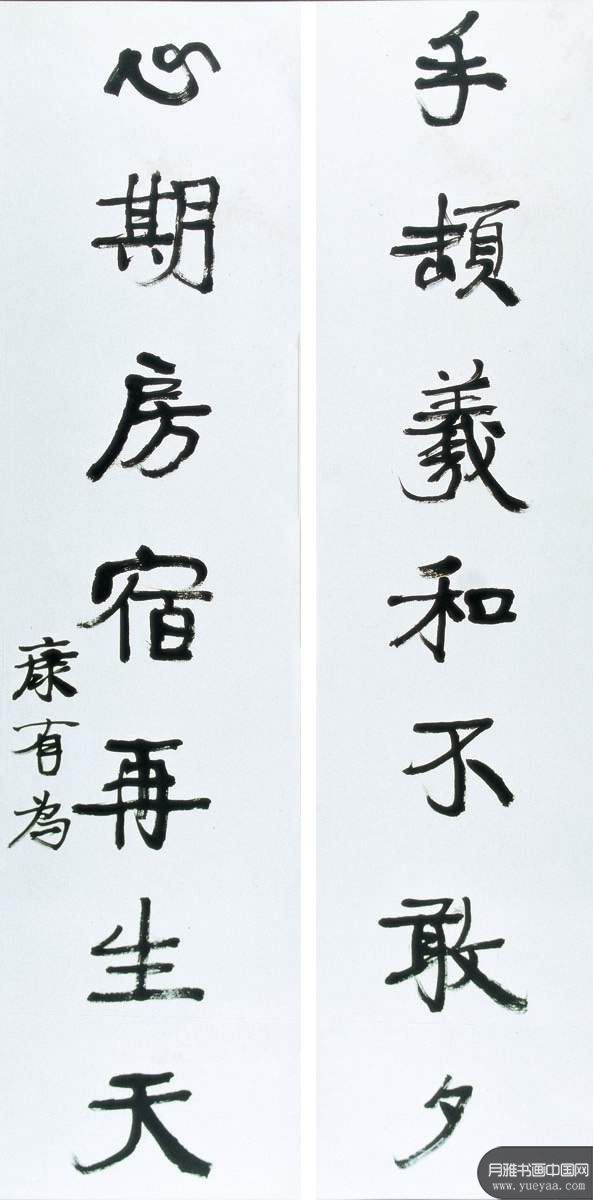 手頡羲和不敢夕
心期房宿再生天
康有為
月雅书画中国网
www.yueyaa.com